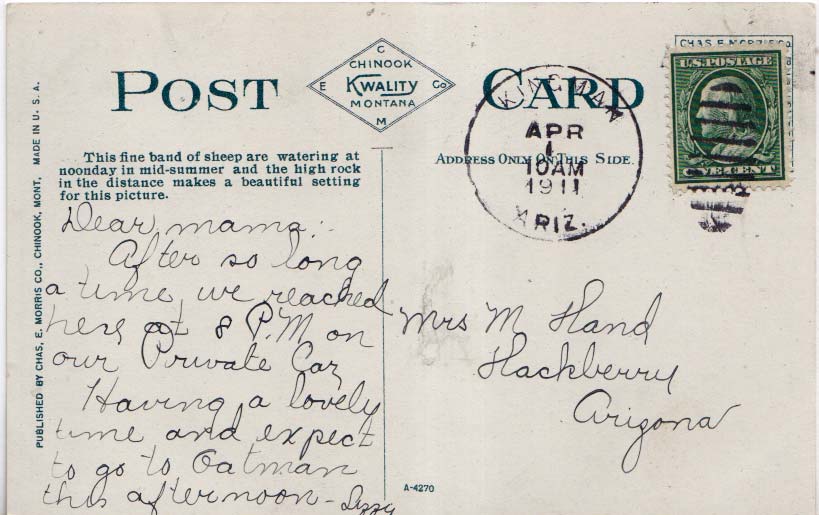 POST CARD
C
CHINOOK
E KWALITY Co
MONTANA
M
CHAS. E. MORRIS Co.
U.S. POSTAGE
ONE CENT
KINGMAN
APR
1
10AM
1911
ARIZ.
This fine band of sheep are watering at
noonday in mid-summer and the high rock
in the distance makes a beautiful setting
for this picture.
ADDRESS ONLY ON THIS SIDE.
PUBLISHED BY CHAS, E. MORRIS CO., CHINOOK, MONT, MADE IN U. S. A.
Dear mama:-
After so long
a time we reached
here at 8 P.M on
our Private Car
Having a lovely
time and expect
to go to Oatman
this afternoon - Lizzy
Mrs M Hand
Hackberry
Arizona
A-4270